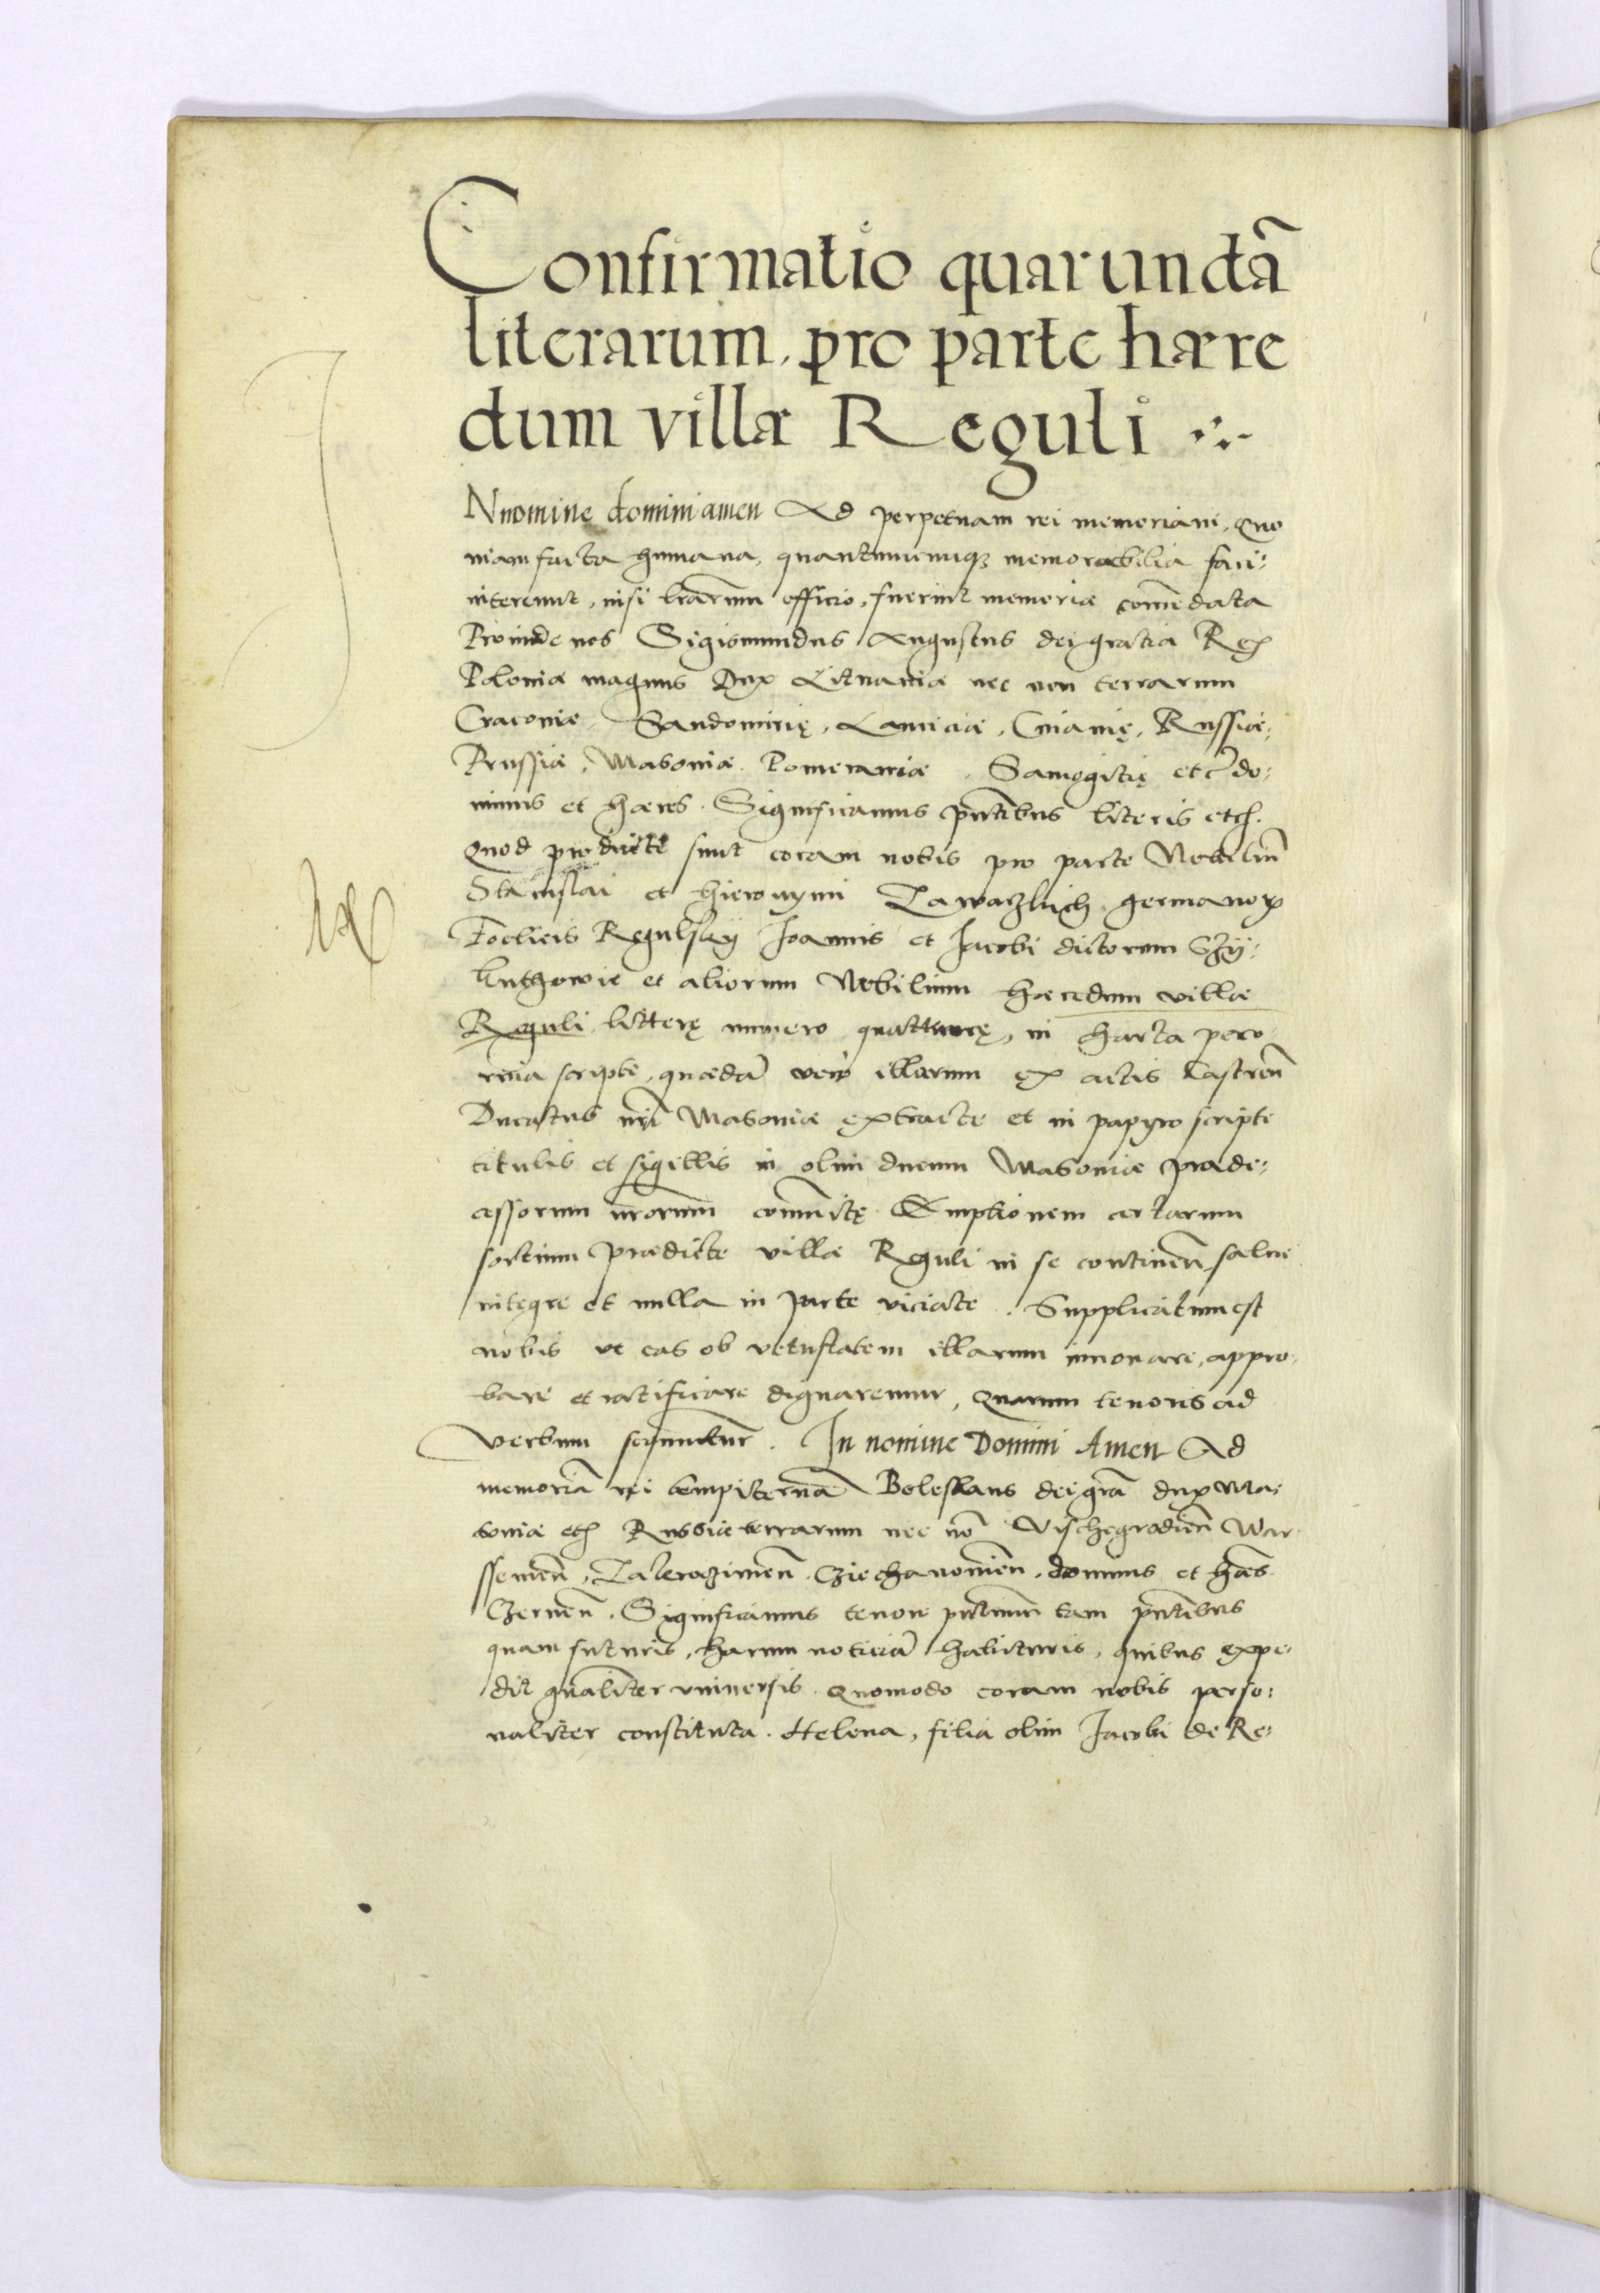 Confirmatio quarundã
literarum, pro parte hære
dum villæ Reguli
I Nnomine domini amen Ad perpetuam rei memoriam. Quo
niam facta humana, quantumcumq; memorabilia faci-
intereunt, nisi lrarum officio, fuerint memoriæ comẽdata
Proinde nos Sigismundus Augustus dei gratia Rex
Poloniæ magnus Dux Lituaniæ nec non terrarum
Cracoviæ, Sandomirię, Lanciciæ, Cuiavię, Russiæ,
Prussiæ, Masoviæ Pomeraniæ, Samogitię etc̃ do-
minus et hæres. Significamus pñtibus literis etc.
Quod producte sunt coram nobis pro parte Nobiliũ
Stanislai et Hieronymi germanor
Foelicis Regulsky Joannis et Jacobi dictorum
et aliorum Nobilium hæredum villæ
Reguli litterę numero quattuor, in charta perg-
scripte, quædã vero illarum ex actis Castreñ
Ducatus nri Masoviæ extracte et in papyro scripte
titulis et sigillis olim ducum Masoviæ præde-
cessorum nrorum communitę Emptionem certarum
sortium prædicte villæ Reguli in se continen salve
integre et nulla in parte viciate. Supplicatum est
nobis ut eas ob vetustatem illarum innovare, appro-
bare et ratificare dignaremur, Quarum tenoris ad
verbum sequuntur. In nomine Domini Amen Ad
memoriã rei sempiternã Boleslaus dei grã dux Ma-
soviæ etc Russiæ terrarum nec nõ Vischegrodieñ War-
Czernen. Significamus tenore pñtium tam pñtibus
quam futuris, harum noticiã habituris, quibus expe-
dit gñaliter universis Quomodo coram nobis perso-
naliter constituta. Helena, filia olim Jacobi de Re-